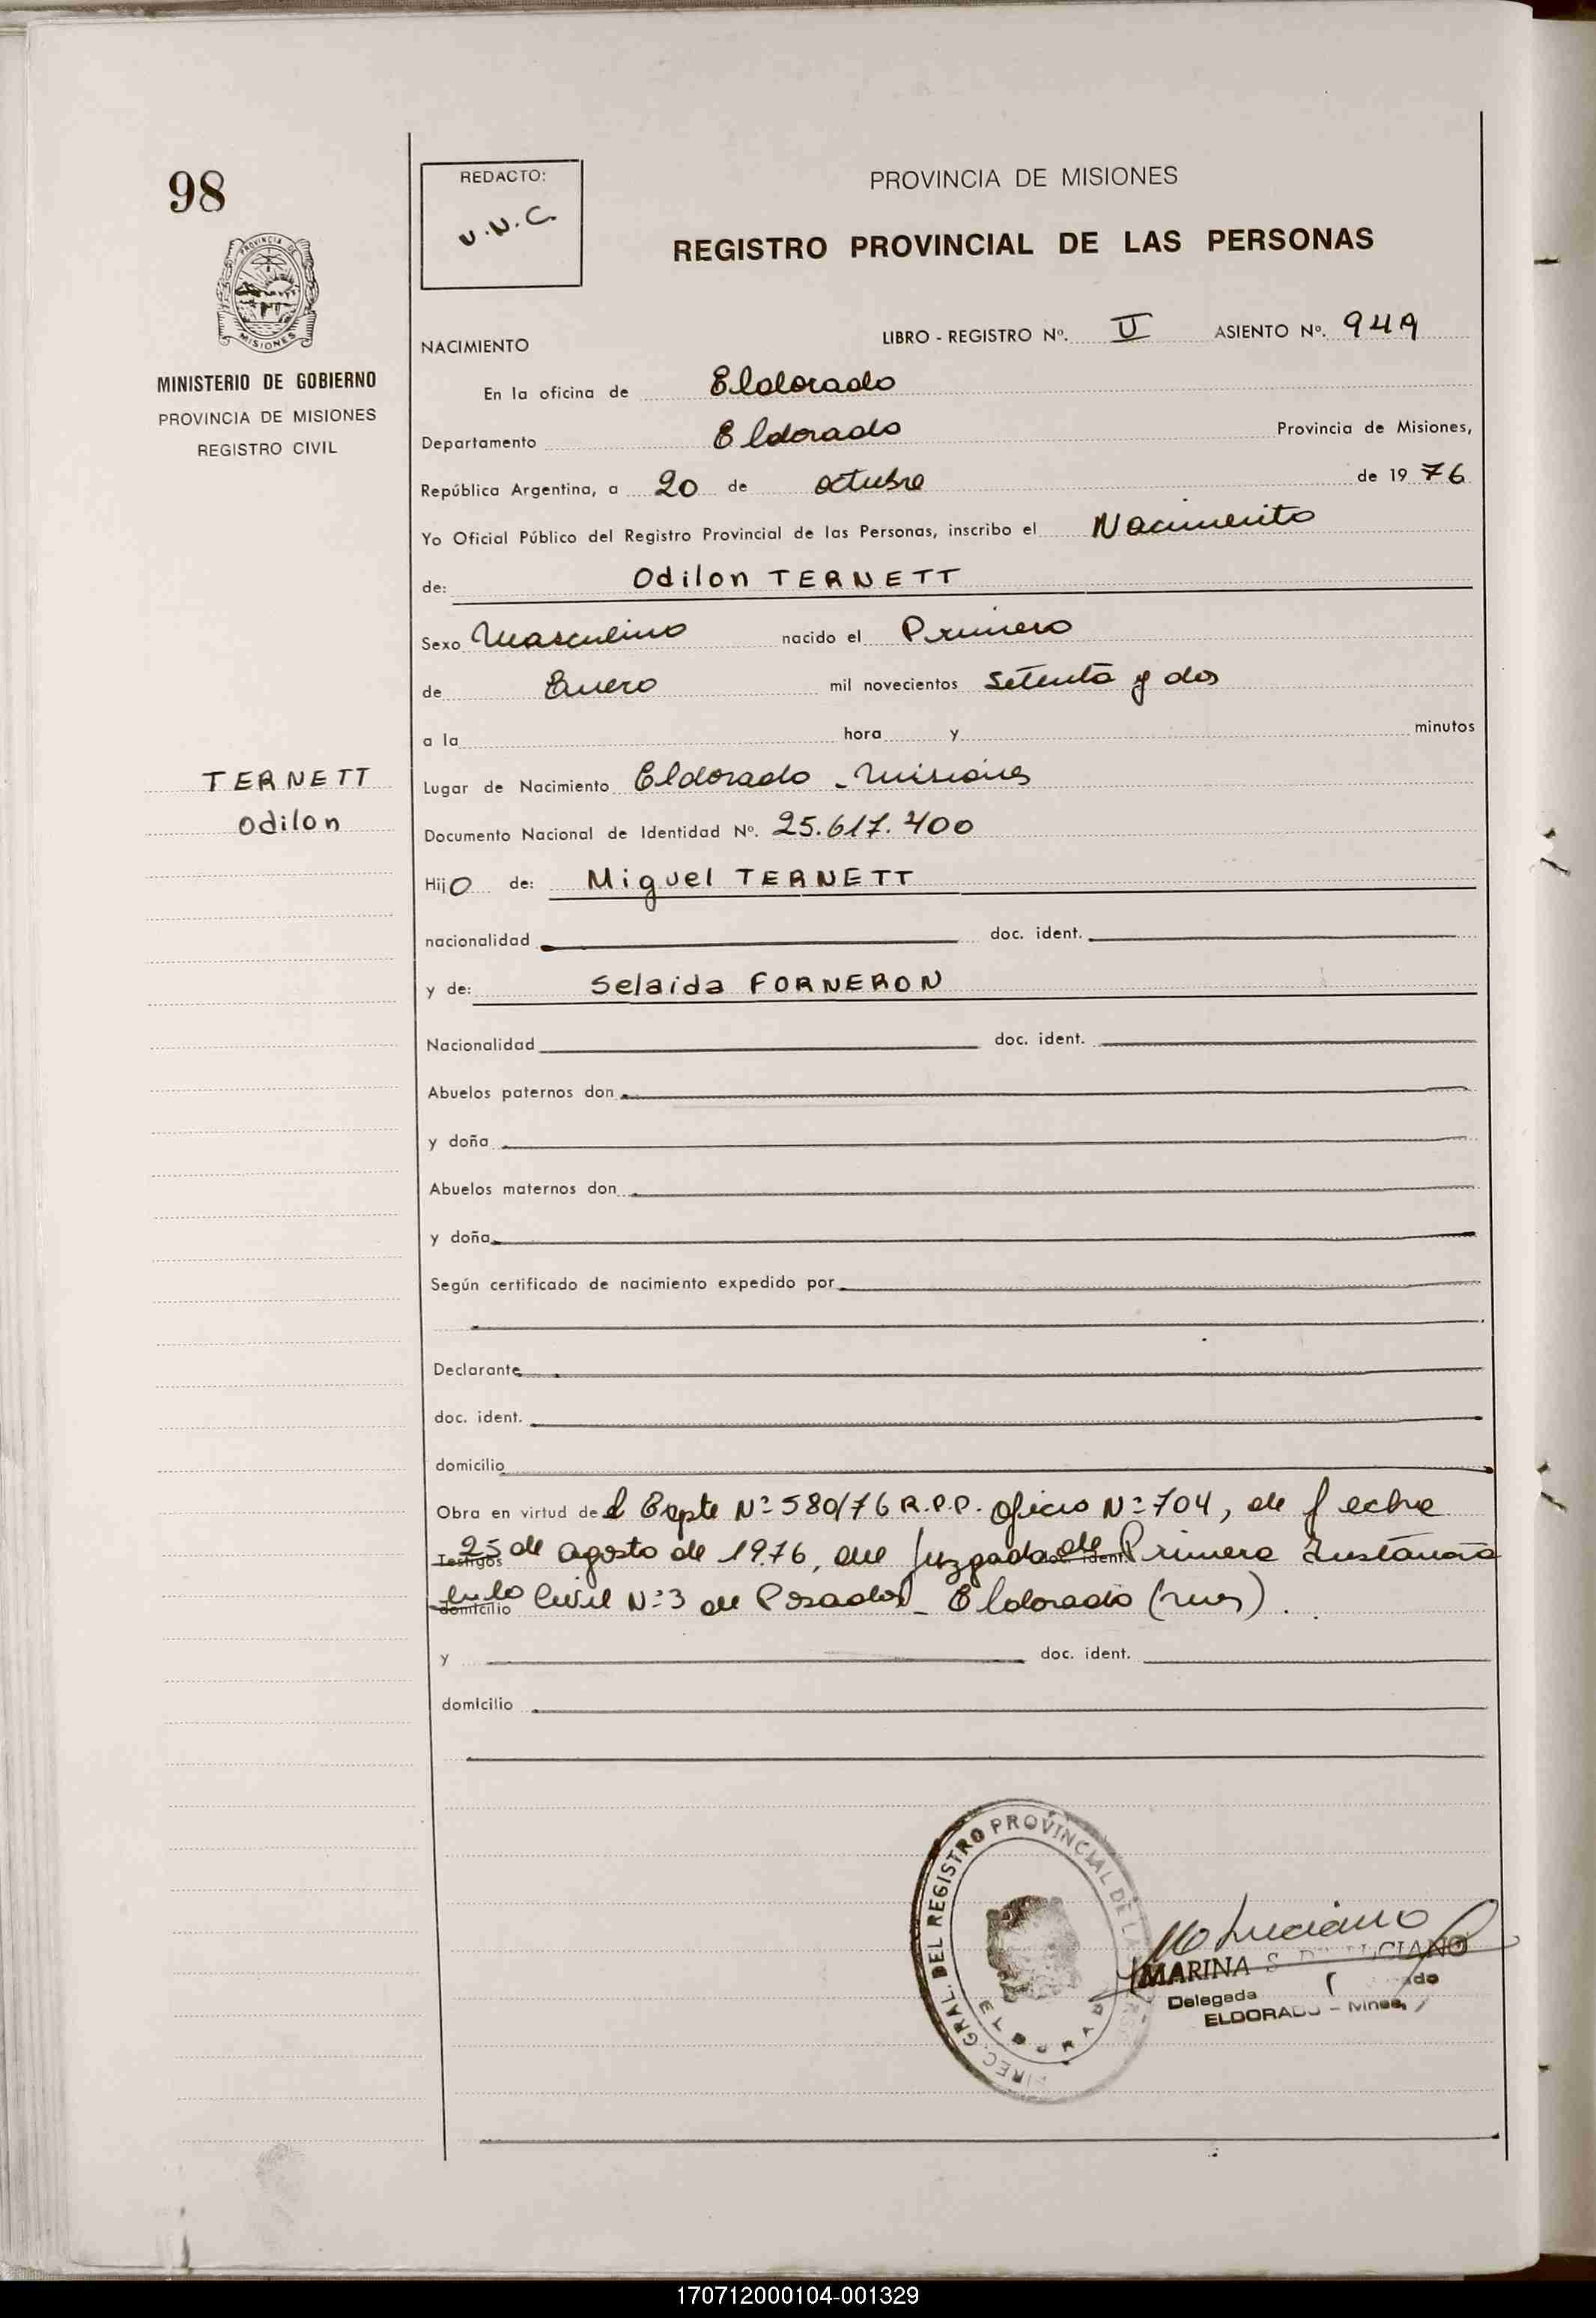 98
REDACTO:
U.N.C.
PROVINCIA DE MISIONES
REGISTRO PROVINCIAL DE LAS PERSONAS
PROVINCIA DE
MISIONES
MINISTERIO DE GOBIERNO
PROVINCIA DE MISIONES
REGISTRO CIVIL
LIBRO - REGISTRO Nº. II ASIENTO Nº. 94A
NACIMIENTO
En la oficina de Eldorado
Departamento Eldorado Provincia de Misiones,
República Argentina, a 20 de octubre de 19 76
Yo Oficial Público del Registro Provincial de las Personas, inscribo el Nacimiento
de: Odilon TERNETT
Sexo Masculino nacido el Primero
de Enero mil novecientos setenta y dos
a la hora y minutos
TERNETT
Odilon
Lugar de Nacimiento Eldorado - Misiones
Documento Nacional de Identidad Nº. 25.617.400
Hijo de: Miguel TERNETT
nacionalidad doc. ident.
y de: Selaida FORNERON
Nacionalidad doc. ident.
Abuelos paternos don
y doña
Abuelos maternos don
y doña
Según certificado de nacimiento expedido por
Declarante
doc. ident.
domicilio
Obra en virtud del Expte Nº 580/76 R.P.P. Oficio Nº 704, de fecha
Testigos 25 de agosto de 1976, del Juzgado de doc. ident. Primera Instancia
domicilio en lo Civil Nº 3 de Posadas - Eldorado (mnes).
y doc. ident.
domicilio
DIREC. GRAL. DEL REGISTRO PROVINCIAL DE LAS
ELDORADO
M Luciano
MARINA S. LUCIANO
Delegada
ELDORADO - Mnes.
170712000104-001329